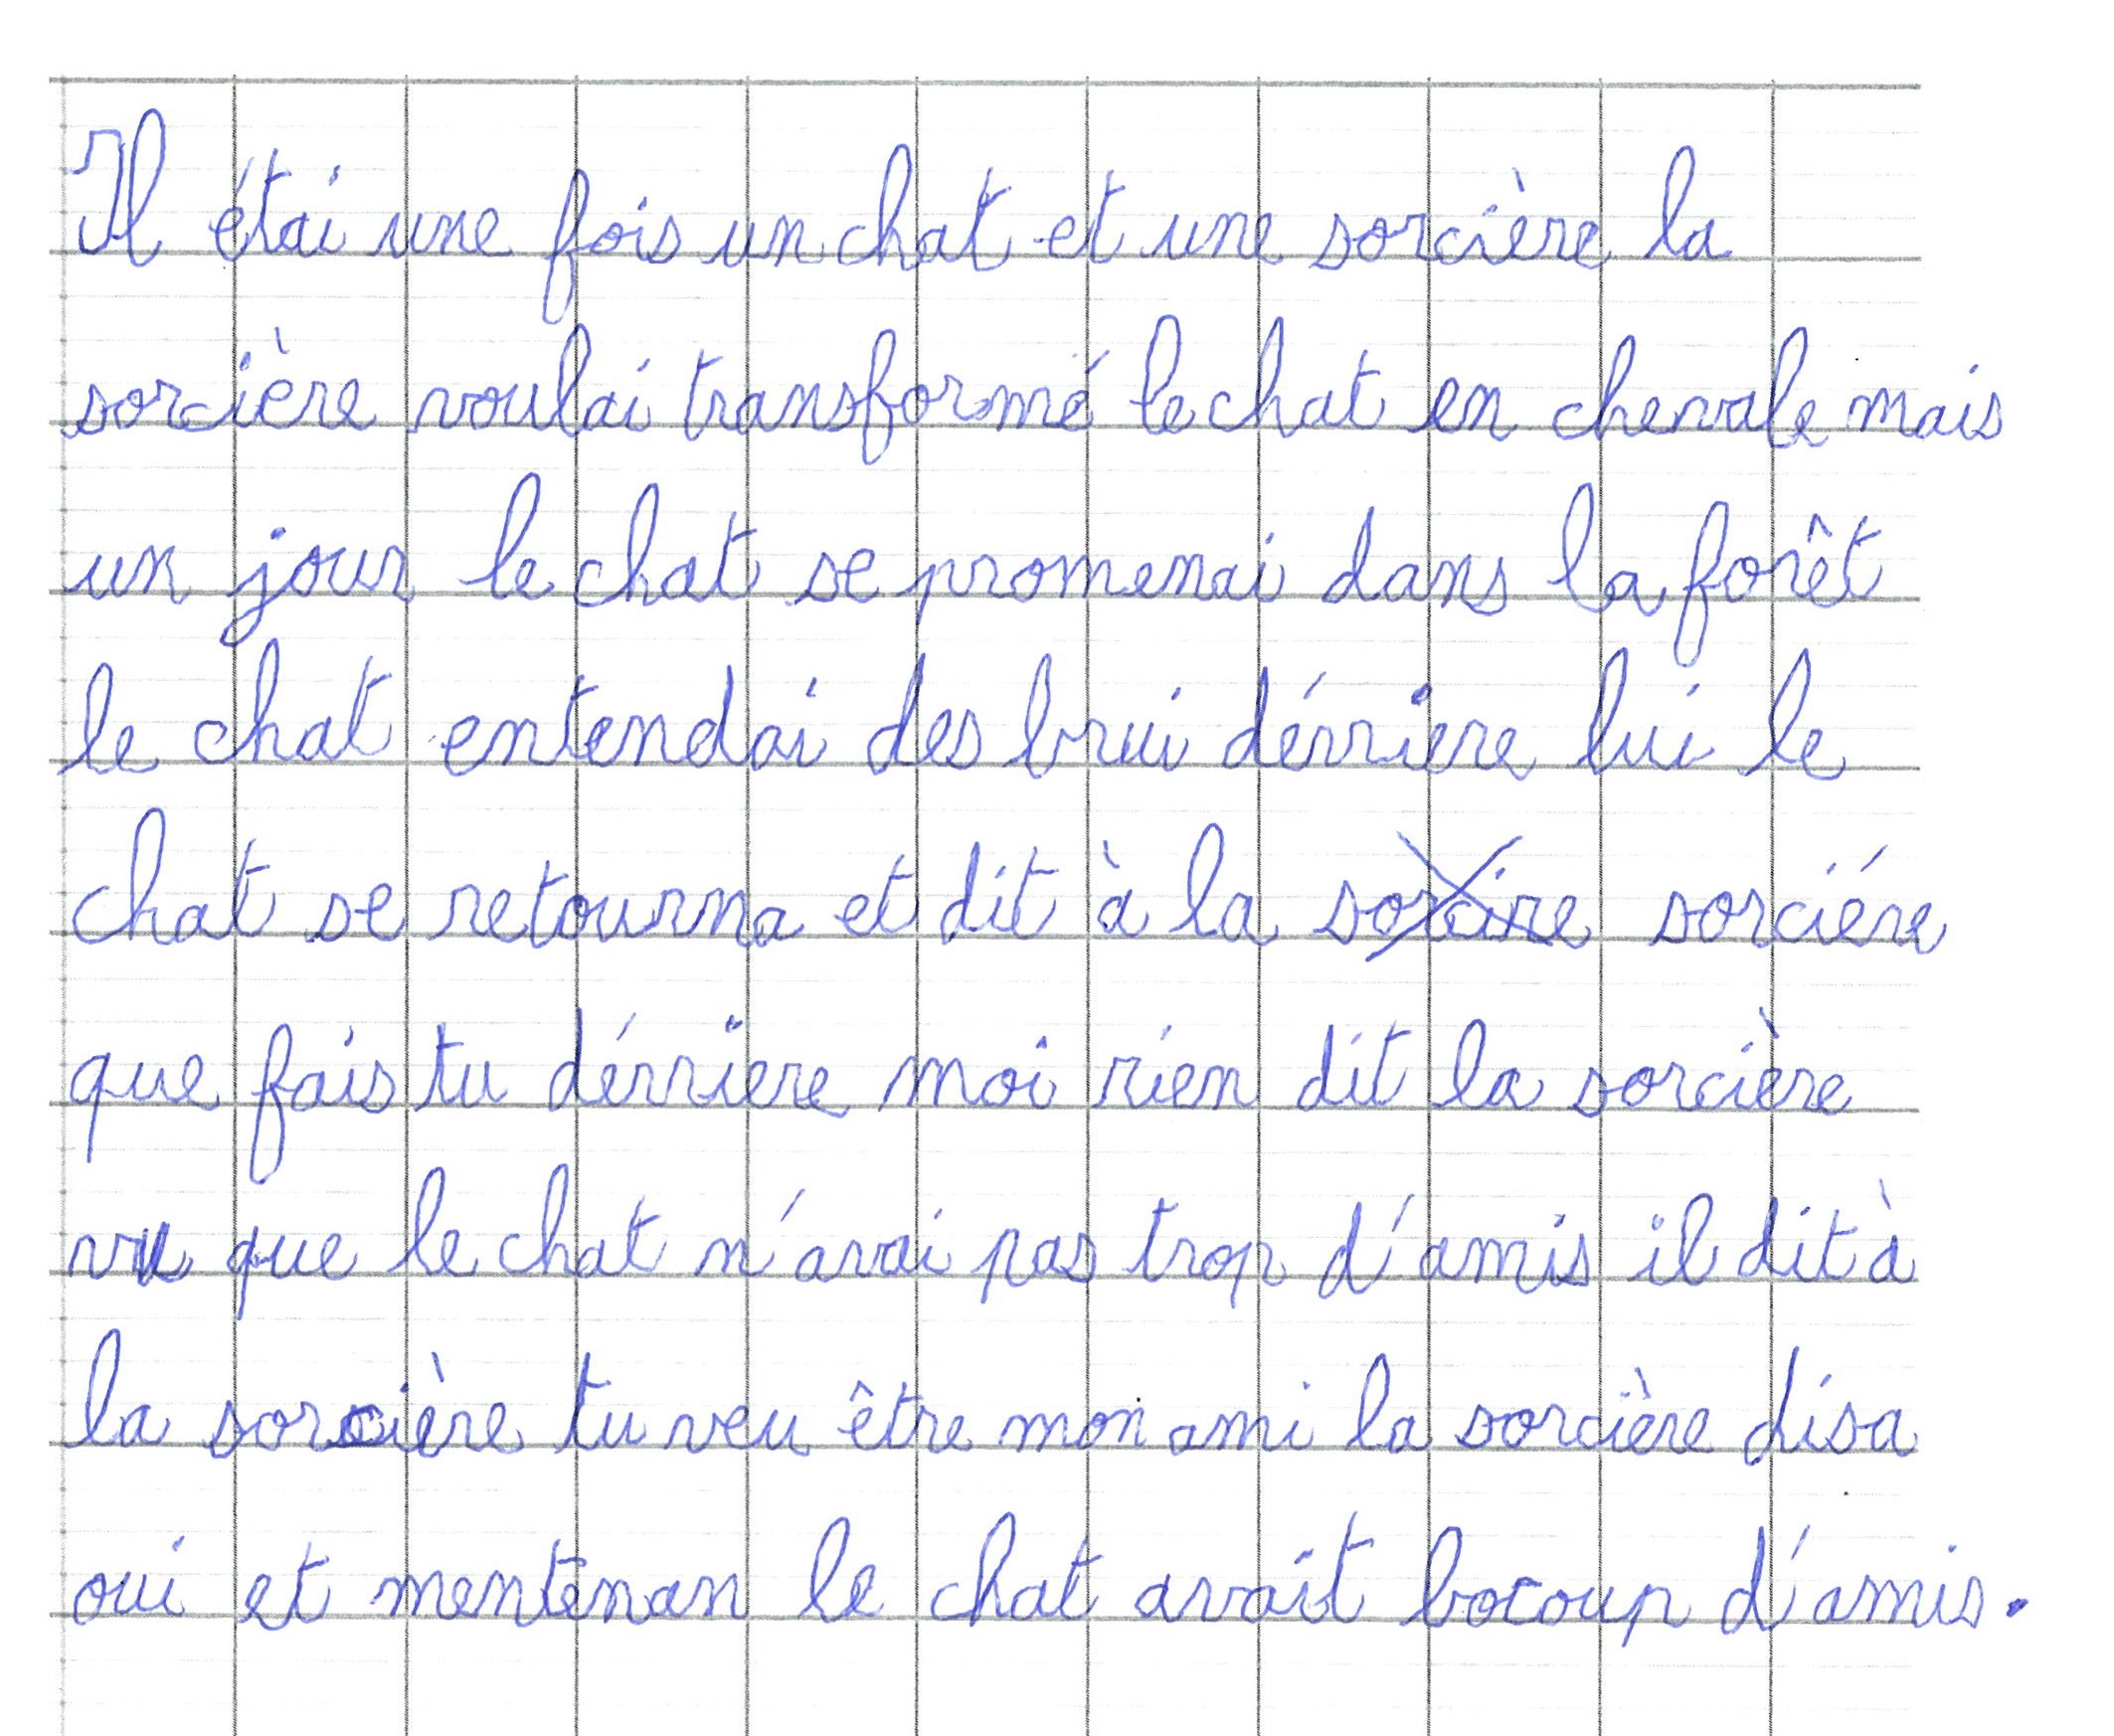 Il étai une fois un chat et une sorcière la
sorcière voulai transformé le chat en chevale mais
un jour le chat se promenai dans la forêt
le chat entendai des brui dérriere lui le
chat se retourna et dit à la sorcire sorciére
que fais tu dérriere moi rien dit la sorcière
vu que le chat n'avai pas trop d'amis il dit à
la sorcière tu veu être mon ami la sorcière disa
oui et mentenan le chat avait bocoup d'amis.